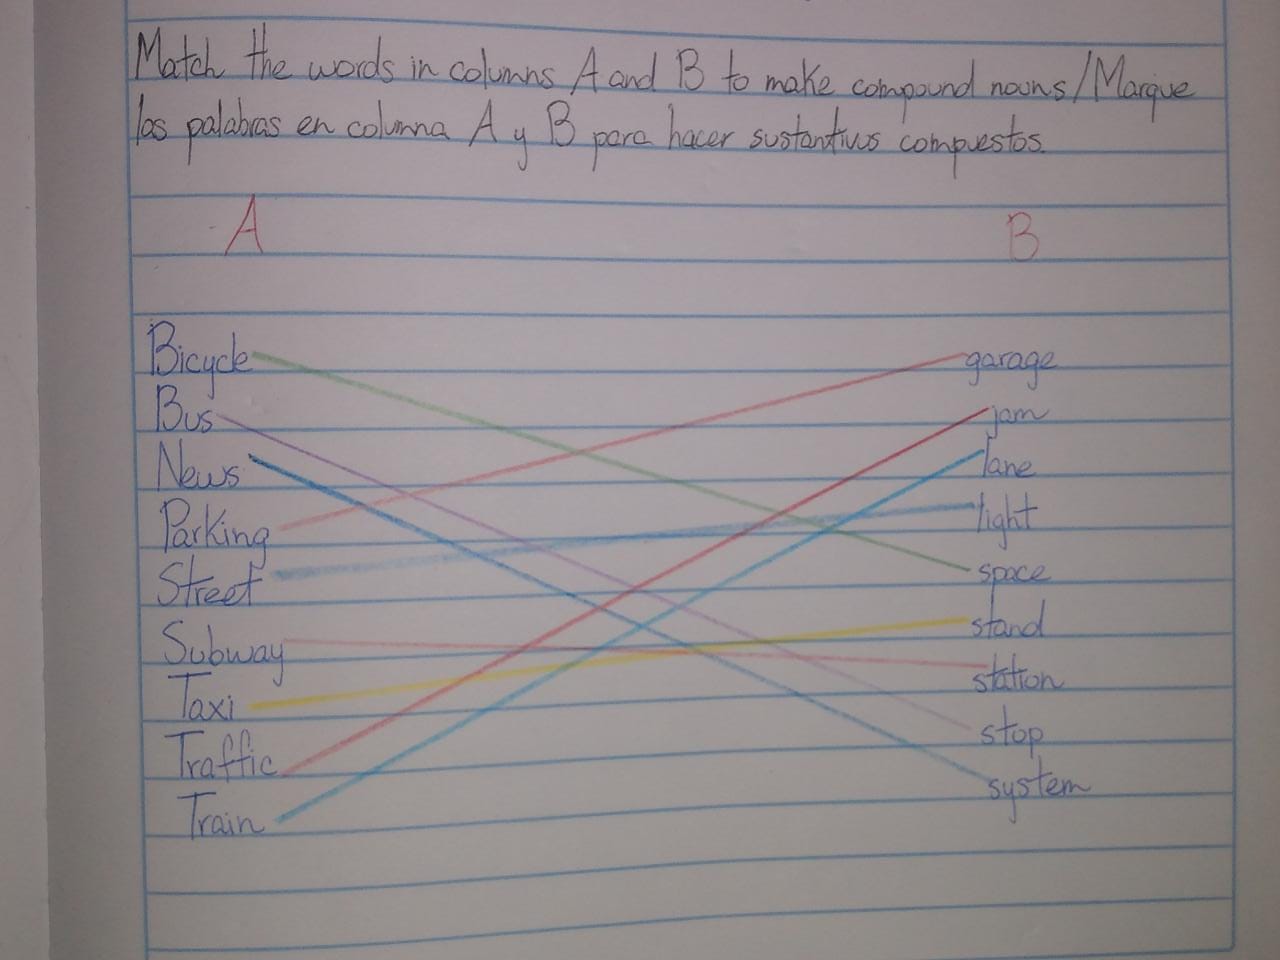 Match the words in columns A and B to make compound nouns/Marque
las palabras en columna A y B para hacer sustantivos compuestos.
A B
Bicycle garage
Bus jam
News lane
Parking light
Street space
Subway stand
Taxi station
Traffic stop
Train system